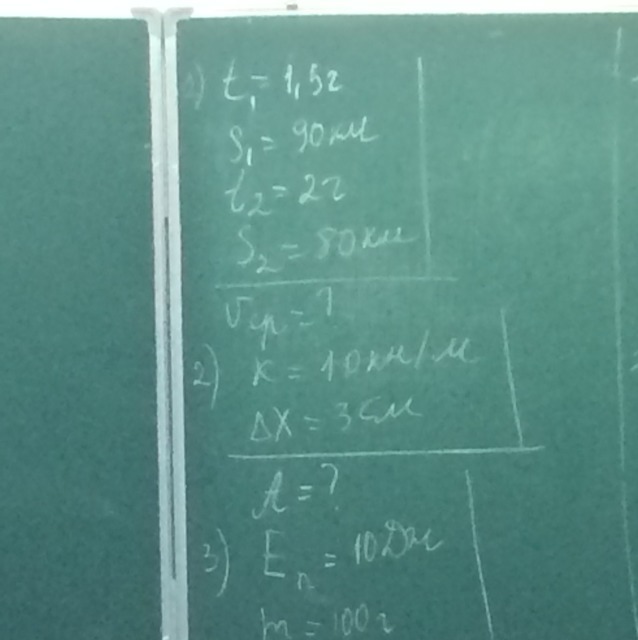 1) t₁ = 1,5г
S₁ = 90км
t₂ = 2г
S₂ = 80км
Vср = ?
2) K = 10кН/м
ΔX = 3см
A = ?
3) Eₙ = 10Дж
m = 100г